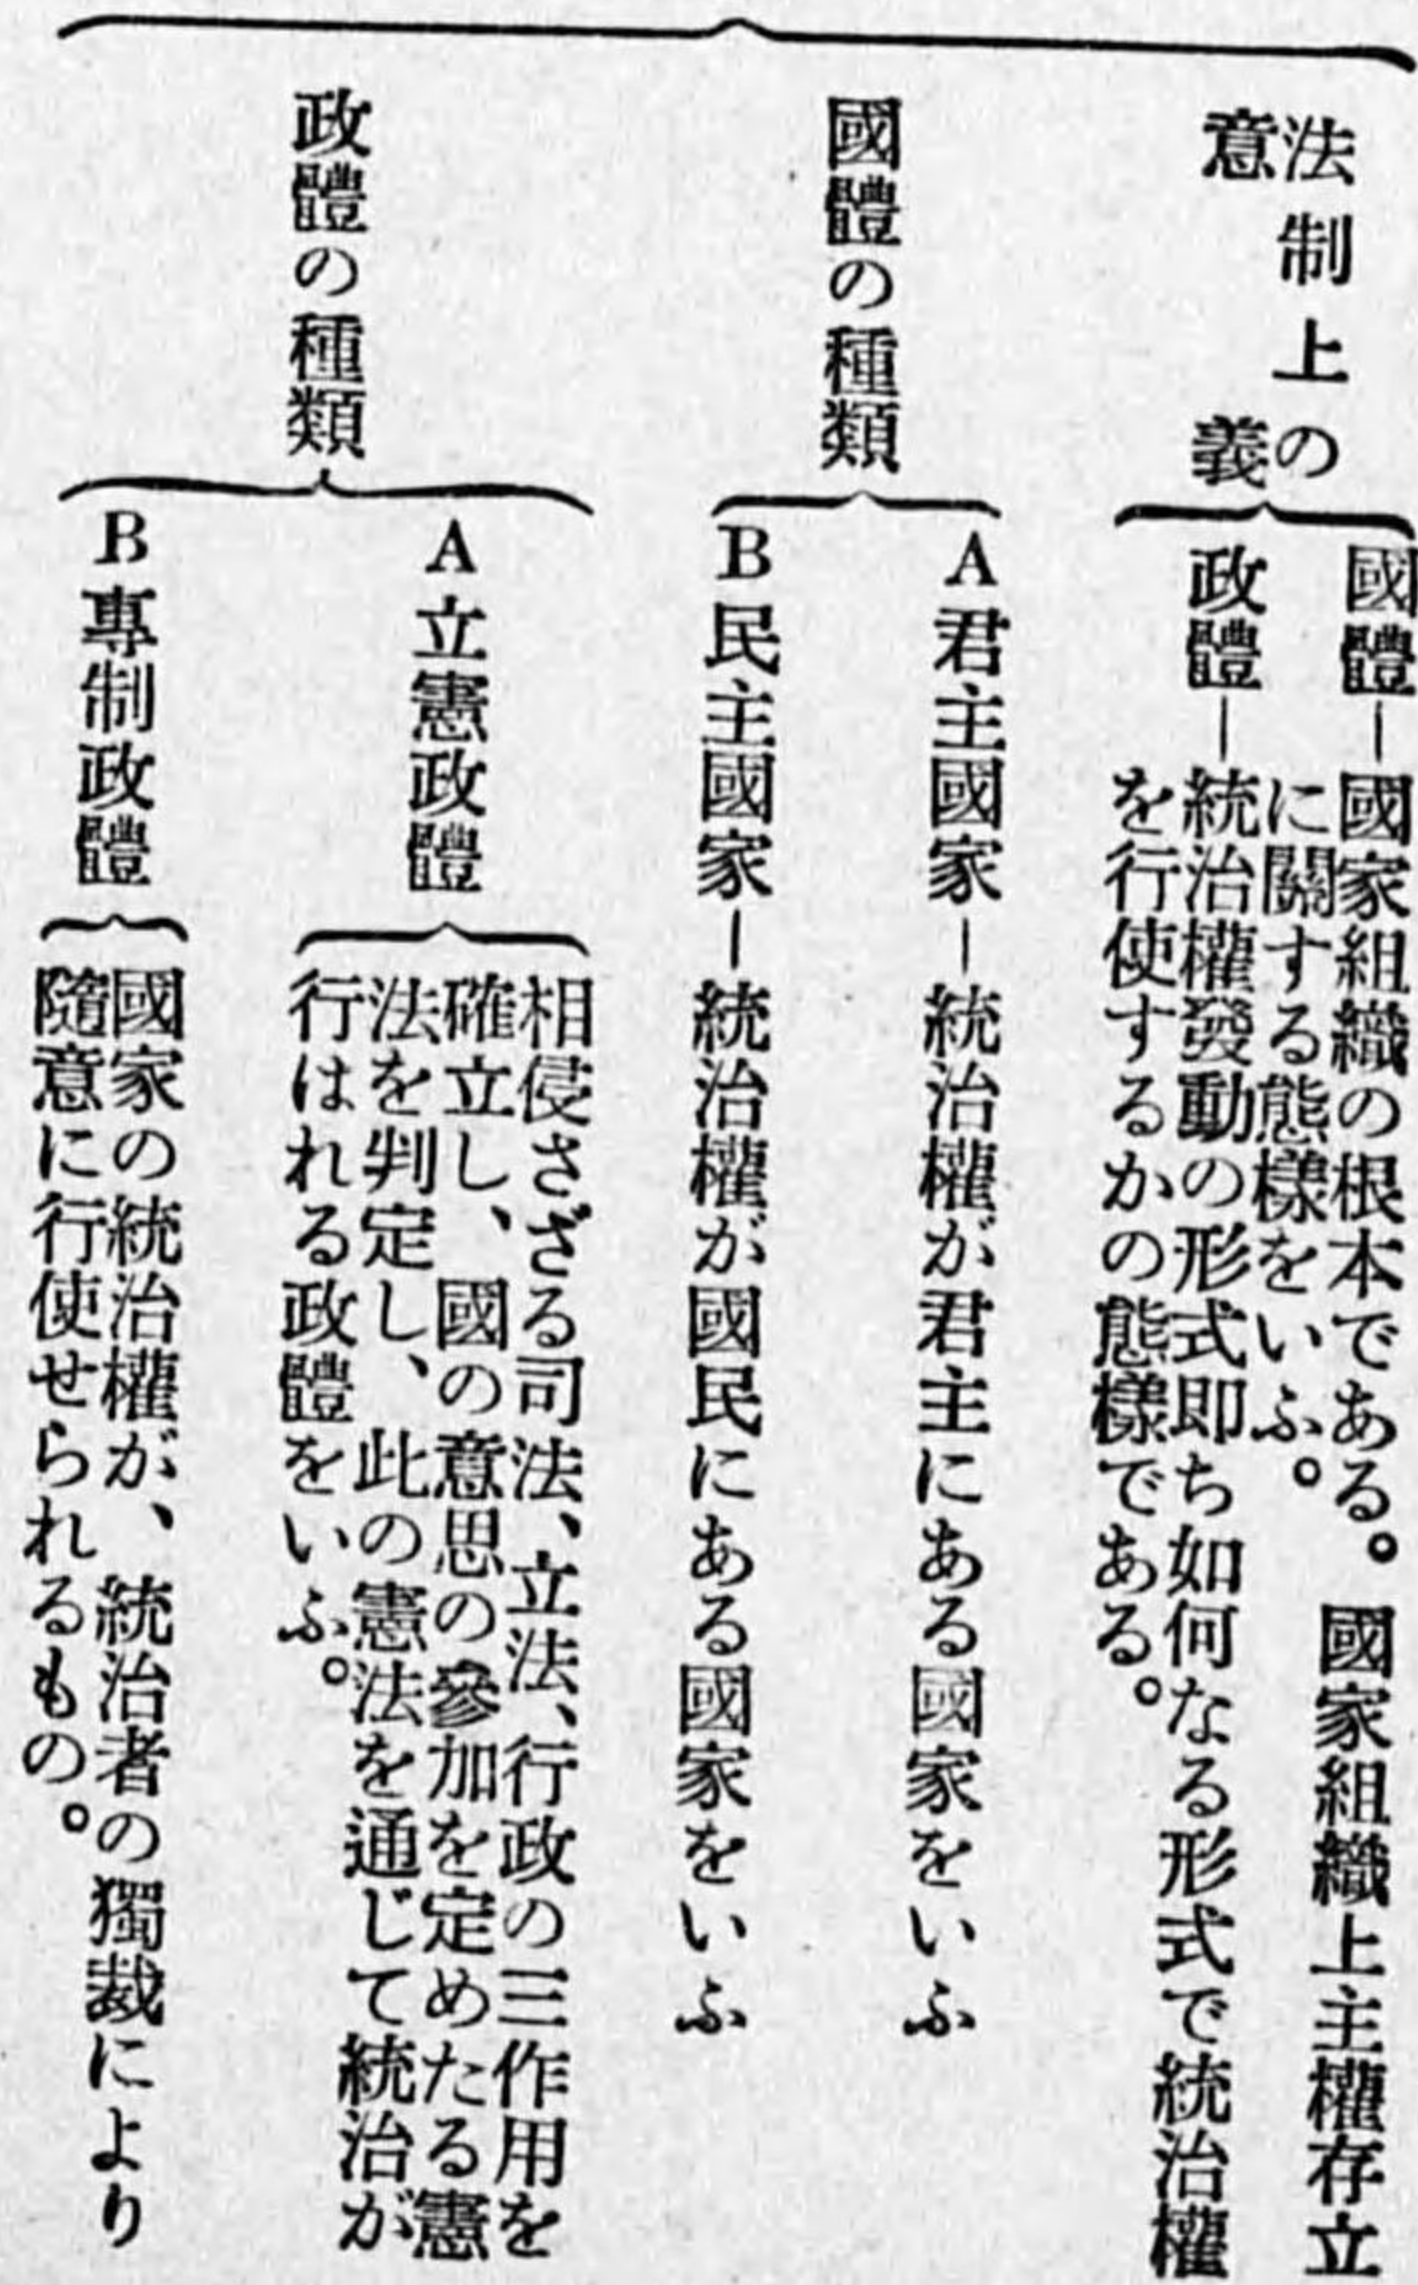 法制上の
意義
國體―國家組織の根本である。國家組織上主權存立
に關する態樣をいふ。
政體―統治權發動の形式即ち如何なる形式で統治權
を行使するかの態樣である。
國體の種類
A 君主國家―統治權が君主にある國家をいふ
B 民主國家―統治權が國民にある國家をいふ
政體の種類
A 立憲政體
相侵さざる司法、立法、行政の三作用を
確立し、國の意思の參加を定めたる憲
法を判定し、此の憲法を通じて統治が
行はれる政體をいふ。
B 專制政體
國家の統治權が、統治者の獨裁により
隨意に行使せられるもの。